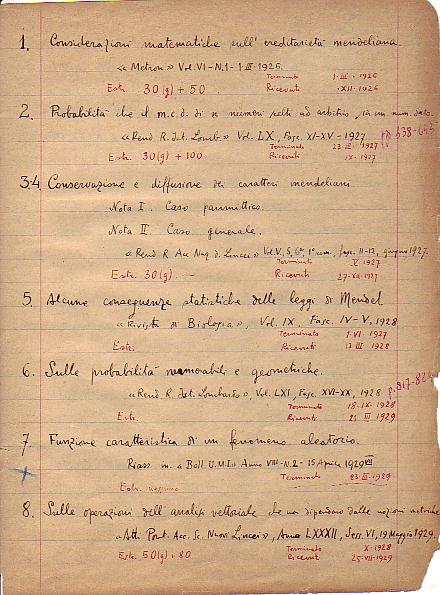 1. Considerazioni matematiche sull'ereditarietà mendeliana
« Metron » Vol. VI - N. 1 - 1·III·1926.
Terminato 1·III·1926
Estr. 30 (g) + 50 Ricevuti ·XII·1926
2. Probabilità che il m.c.d. di n numeri scelti ad arbitrio sia un num. dato.
« Rend. R. Ist. Lomb. » Vol. LX, Fasc. XI-XV - 1927
Terminato 23·III·1927
Estr. 30 (g) + 100 Ricevuti IX·1927
3-4 Conservazione e diffusione dei caratteri mendeliani
Nota I. Caso panmittico.
Nota II Caso generale.
« Rend R. Acc Naz. d. Lincei » Vol. V, S. 6ª, 1° sem., fasc. 11-12, giugno 1927.
Terminati V·1927
Estr. 30 (g) Ricevuti 27·XII·1927
5. Alcune conseguenze statistiche delle leggi di Mendel
« Rivista di Biologia », Vol. IX. Fasc. IV-V, 1928
Terminato 1·VI·1927
Estr. Ricevuti 17 III 1928
6. Sulle probabilità numerabili e geometriche.
« Rend. R. Ist. Lombardo », Vol. LXI, Fasc. XVI-XX, 1928
Terminato 18·IX·1928
Estr. Ricevuti 21 III 1929
7. Funzione caratteristica di un fenomeno aleatorio.
Riass. in « Boll. U.M.I. » Anno VIII - N. 2 - 15 Aprile 1929 VII
Terminato 23·III·1929
Estr. nessuno
8. Sulle operazioni dell'analisi vettoriale che non dipendono dalle nozioni metriche
« Atti Pont. Acc. Sc. Nuovi Lincei », Anno LXXXII, Sess. VI, 19 Maggio 1929.
Terminato X·1928
Estr. 50 (g) + 80 Ricevuti 25·VII·1929